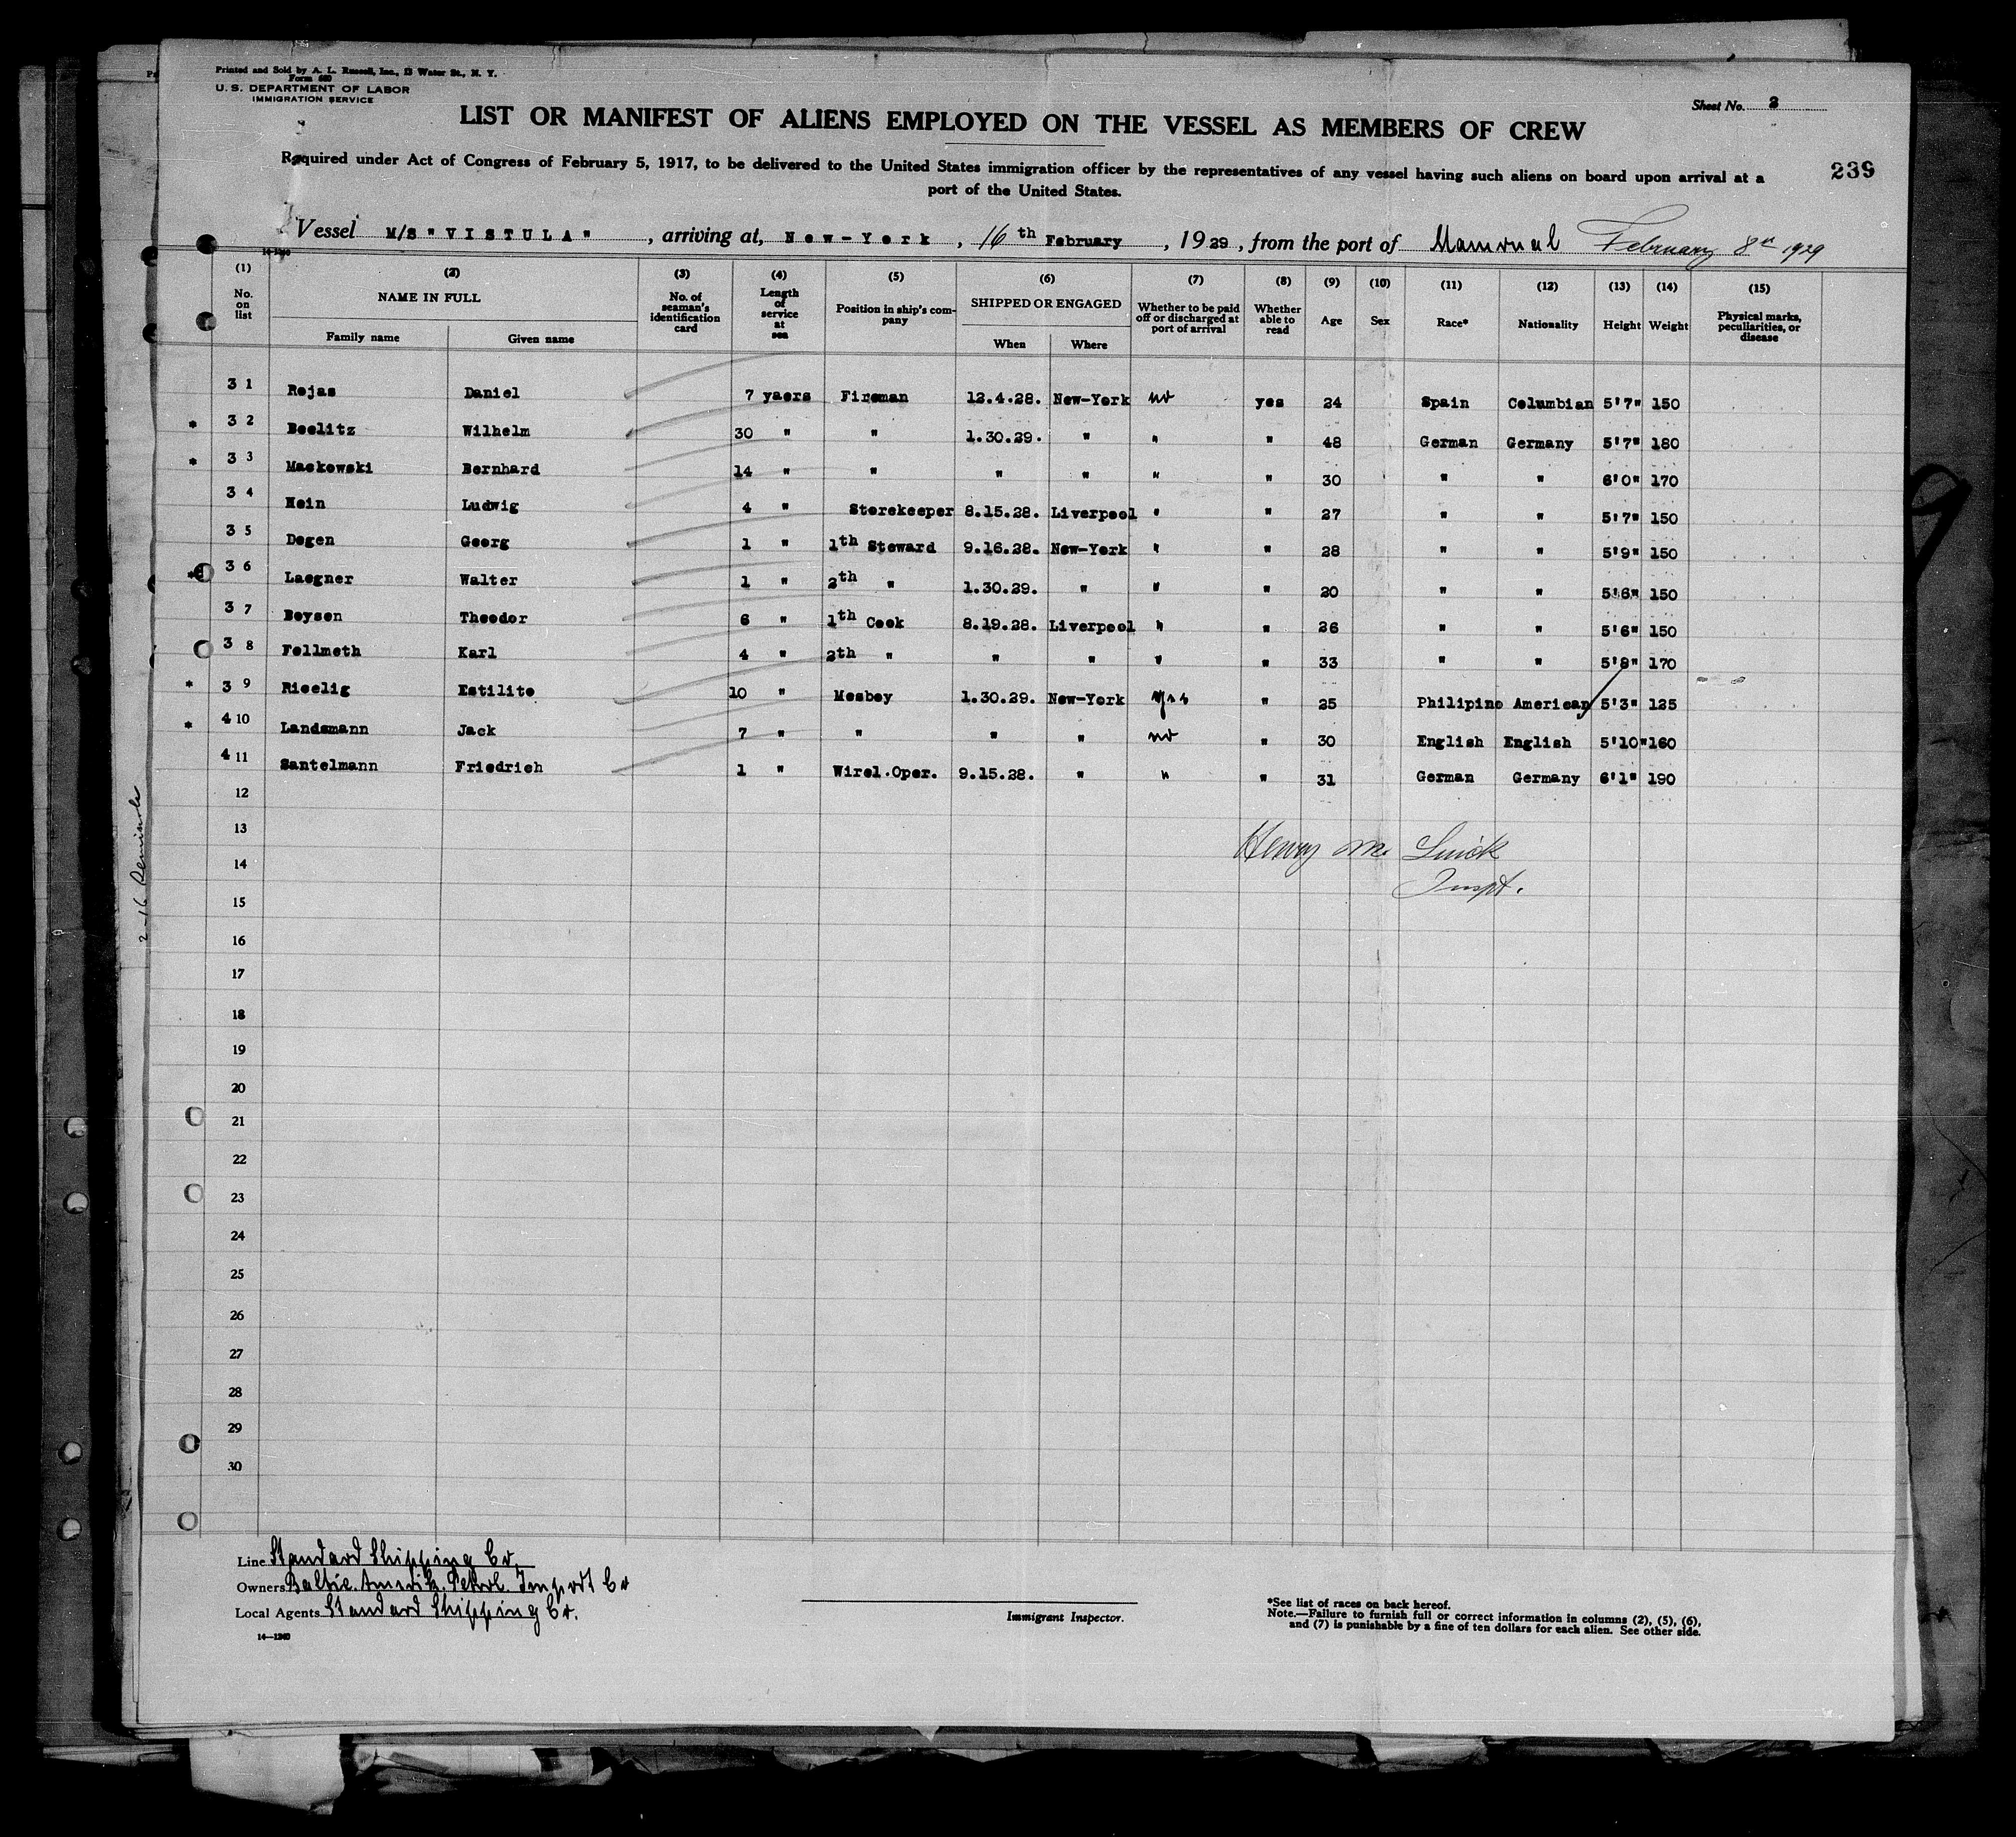 Printed and Sold by A. L. Russell, Inc., 13 Water St., N. Y.
Form 680
U. S. DEPARTMENT OF LABOR
IMMIGRATION SERVICE
Sheet No. 2
LIST OR MANIFEST OF ALIENS EMPLOYED ON THE VESSEL AS MEMBERS OF CREW
239
Required under Act of Congress of February 5, 1917, to be delivered to the United States immigration officer by the representatives of any vessel having such aliens on board upon arrival at a
port of the United States.
Vessel M/S "VISTULA", arriving at, New-York, 16 th February, 1929, from the port of February 8th 1929
(1) (2) (3) (4) (5) (6) (7) (8) (9) (10) (11) (12) (13) (14) (15)
No. on list NAME IN FULL No. of seaman's identification card Length of service at sea Position in ship's company SHIPPED OR ENGAGED Whether to be paid off or discharged at port of arrival Whether able to read Age Sex Race* Nationality Height Weight Physical marks, peculiarities, or disease
Family name Given name When Where
3 1 Rojas Daniel 7 yaers Fireman 12.4.28. New-York no yes 24 Spain Columbian 5'7" 150
* 3 2 Beelitz Wilhelm 30 " " 1.30.29. " " " 48 German Germany 5'7" 180
* 3 3 Mackowski Bernhard 14 " " " " " " 30 " " 6'0" 170
3 4 Hein Ludwig 4 " Storekeeper 8.15.28. Liverpool " " 27 " " 5'7" 150
3 5 Degen Georg 1 " 1th Steward 9.16.28. New-York " " 28 " " 5'9" 150
* 3 6 Laegner Walter 1 " 2th " 1.30.29. " " " 20 " " 5'6" 150
3 7 Beysen Theodor 6 " 1th Cook 8.19.28. Liverpool " " 26 " " 5'6" 150
3 8 Fellmeth Karl 4 " 2th " " " " " 33 " " 5'8" 170
* 3 9 Riselig Estilito 10 " Mesboy 1.30.29. New-York yes " 25 Philipino American 5'3" 125
* 4 10 Landsmann Jack 7 " " " " no " 30 English English 5'10" 160
4 11 Santelmann Friedrich 1 " Wirel.Oper. 9.15.28. " " " 31 German Germany 6'1" 190
12
13
Henry M.
14
Inspt.
15
16
17
18
19
20
21
22
23
24
25
26
27
28
29
30
Line Standard Shipping Co.
Owners Baltic. Amerik. Petrol. Import Co
Local Agents Standard Shipping Co.
14—1240
Immigrant Inspector.
*See list of races on back hereof.
Note.—Failure to furnish full or correct information in columns (2), (5), (6),
and (7) is punishable by a fine of ten dollars for each alien. See other side.